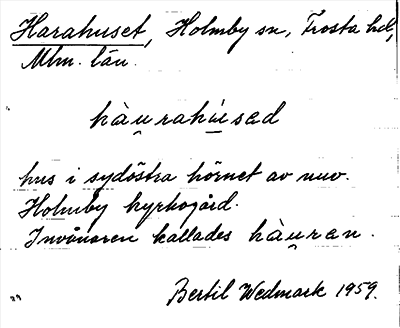 Harahuset, Holmby sn, Frosta hd,
Mlm. län.
hàu̯rahúsed
hus i sydöstra hörnet av nuv.
Holmby kyrkogård.
Invånaren kallades hàu̯ran.
Bertil Wedmark 1959.